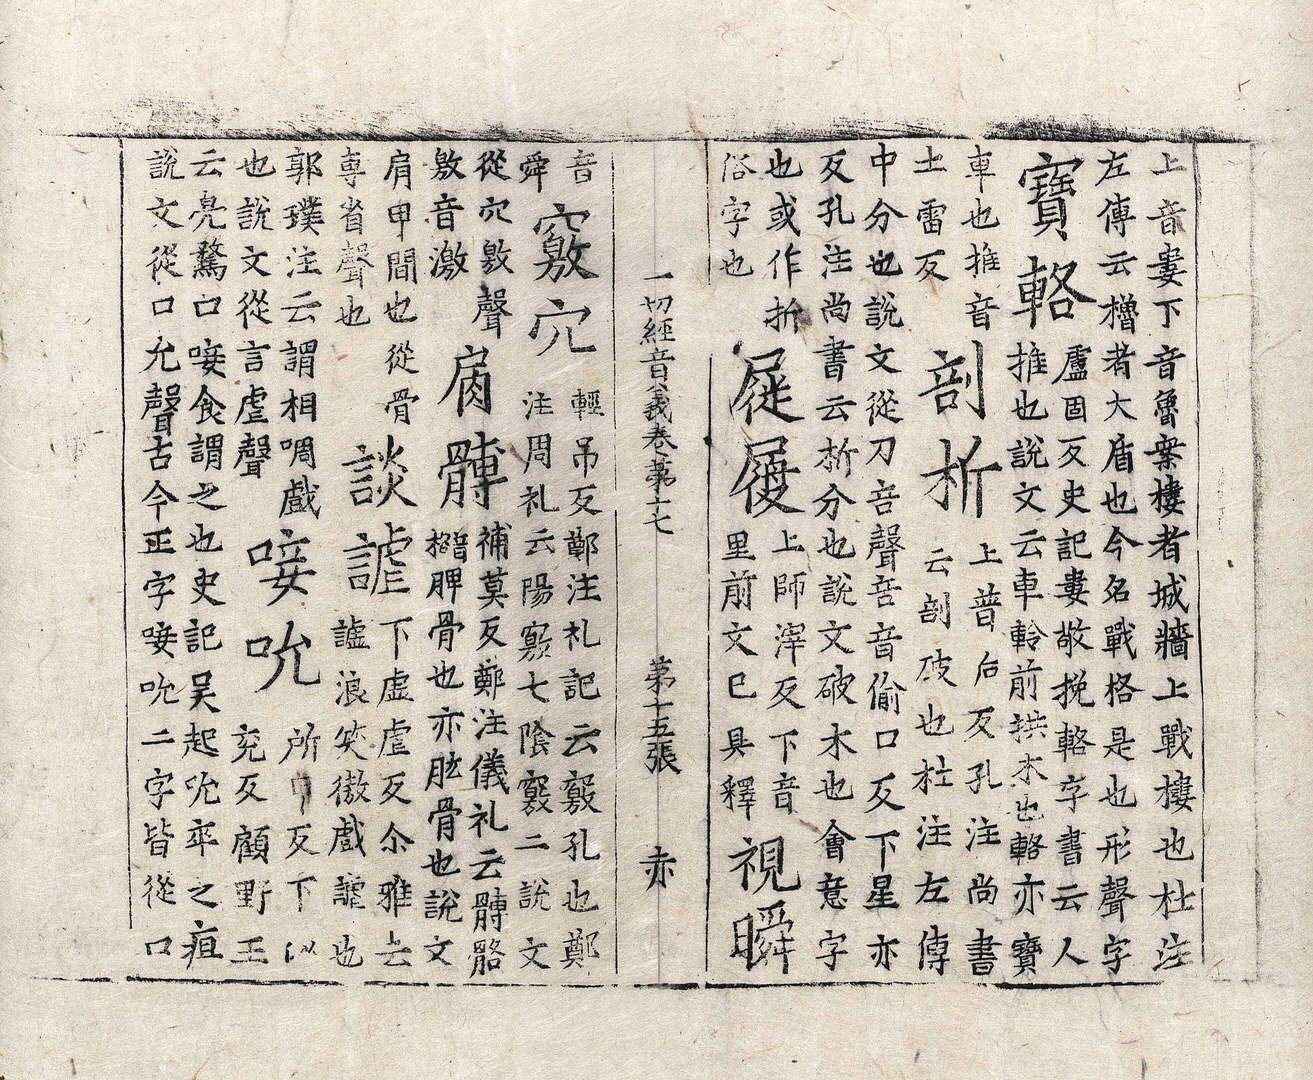 上音婁下音魯案樓者城牆上戰樓也杜注
左傳云櫓者大盾也今名戰格是也形聲字
寶輅
盧固反史記婁敬挽輅字書云人
推也說文云車軨前拱木也輅亦寶
車也推音
土雷反
剖析
上普后反孔注尚書
云剖破也杜注左傳
中分也說文從刀咅聲咅音偷口反下星亦
反孔注尚書云析分也說文破木也會意字
也或作㭊
俗字也
屣履
上師滓反下音
里前文已具釋
視瞬
一切經音義卷第十七 第十五張 亦
音
舜
竅穴
輕吊反鄭注礼記云竅孔也鄭
注周礼云陽竅七陰竅二說文
從穴敫聲
敫音激
肩髆
補莫反鄭注儀礼云髆骼
胛骨也亦肱骨也說文
肩甲間也從骨
專省聲也
談謔
下虛虐反尒雅云
謔浪笑傲戲謔也
郭璞注云謂相啁戲
也說文從言虐聲
唼吮
所甲反下以
兖反顧野王
云鳧鶩口唼食謂之也史記吳起吮卒之疽
說文從口允聲古今正字唼吮二字皆從口